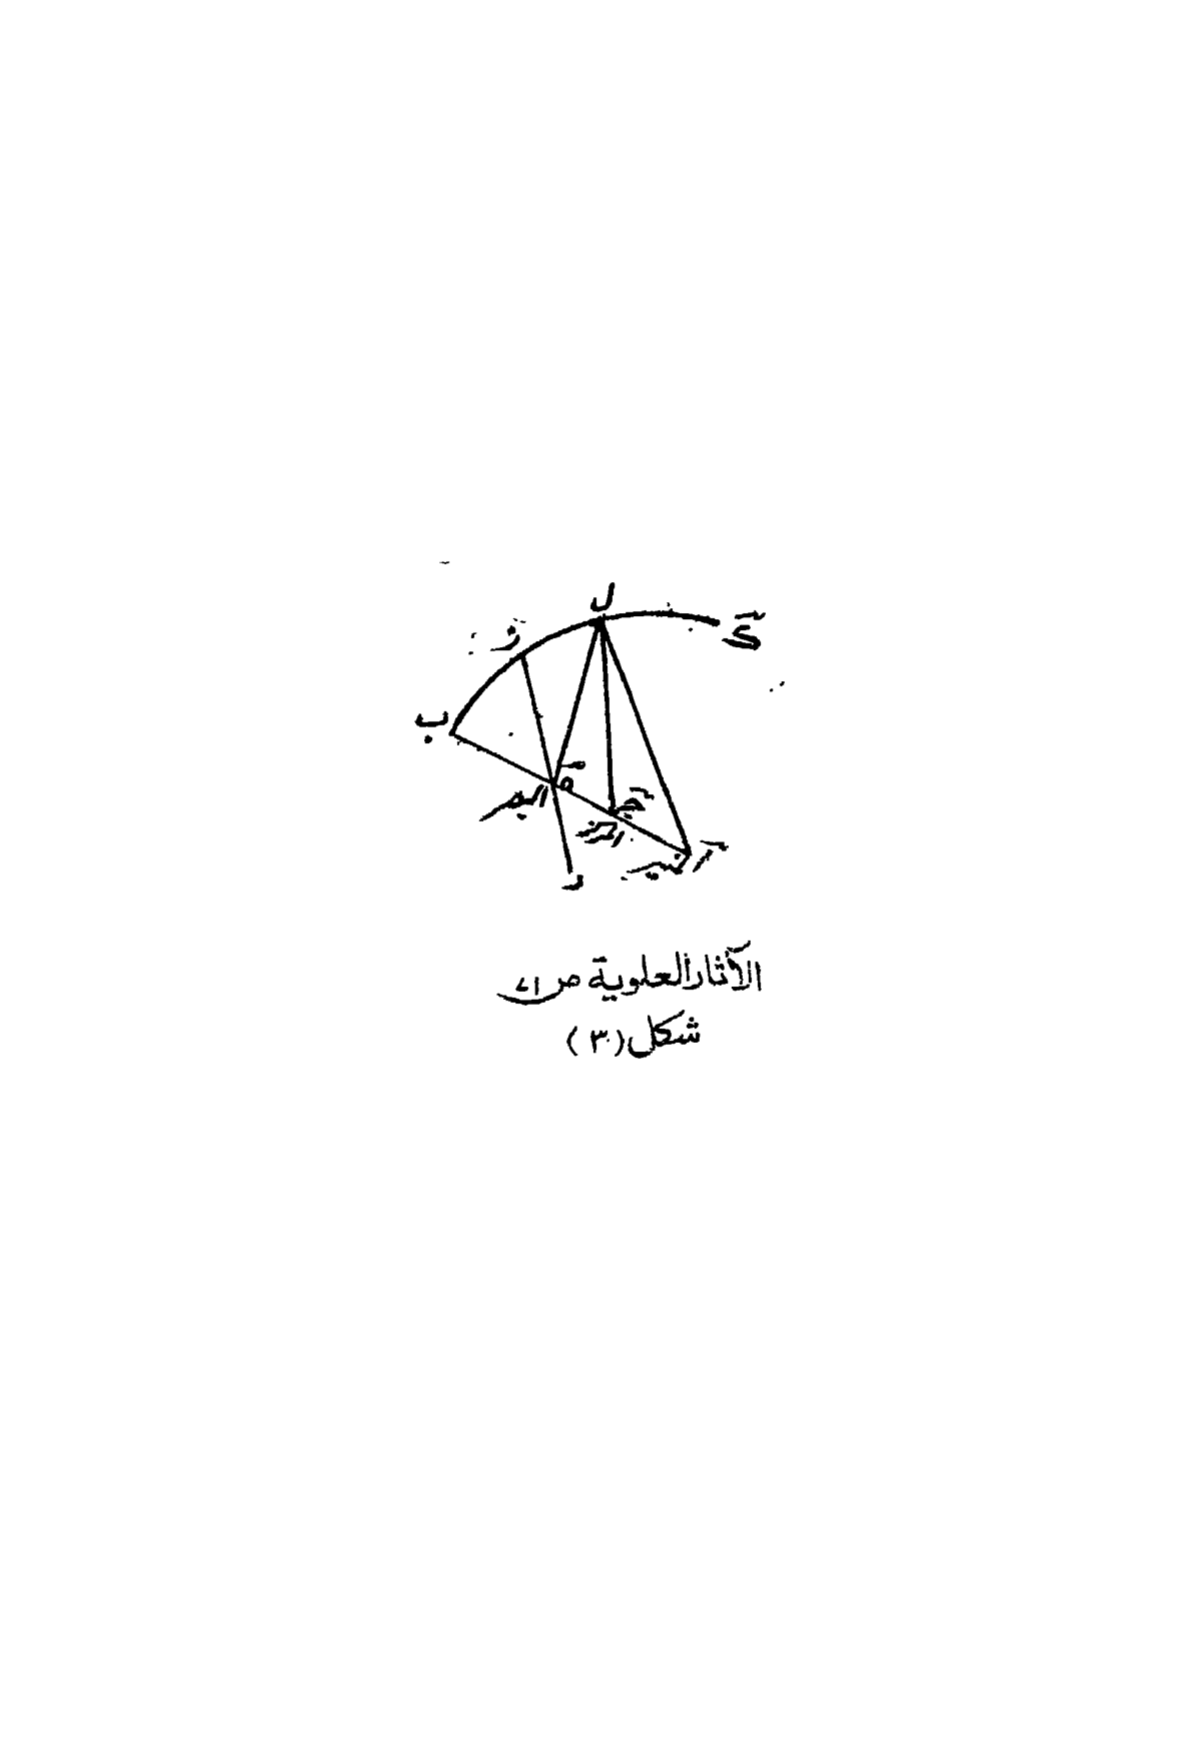 ل
ز
ك
ب
ه
البصر
جـ
المركز
آ
النير
د
الآثار العلوية ص ٧١
شكل (٣)